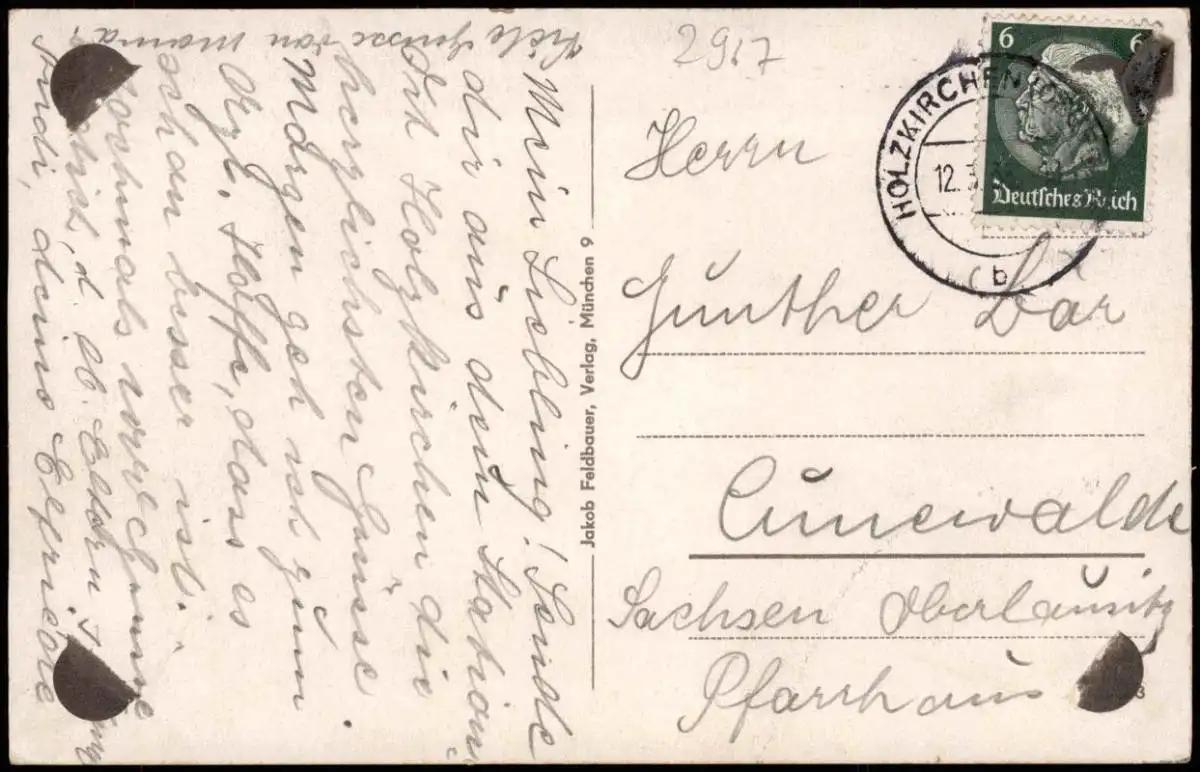 2917
Herrn
Günther Bär
Cunewalde
Sachsen Oberlausitz
Pfarrhaus
6 6
Deutsches Reich
HOLZKIRCHEN
12.3.
(b
Jakob Feldbauer, Verlag, München 9
Mein Liebling! Sende
dir aus dem Station
Ort Holzkirchen die
herzlichsten Grüsse.
Morgen geh ich zum
Arzt. Hoffe, dass es
schon besser ist.
Nochmals
d. Eltern
deine Elfriede
Viele Grüsse von Mama
3